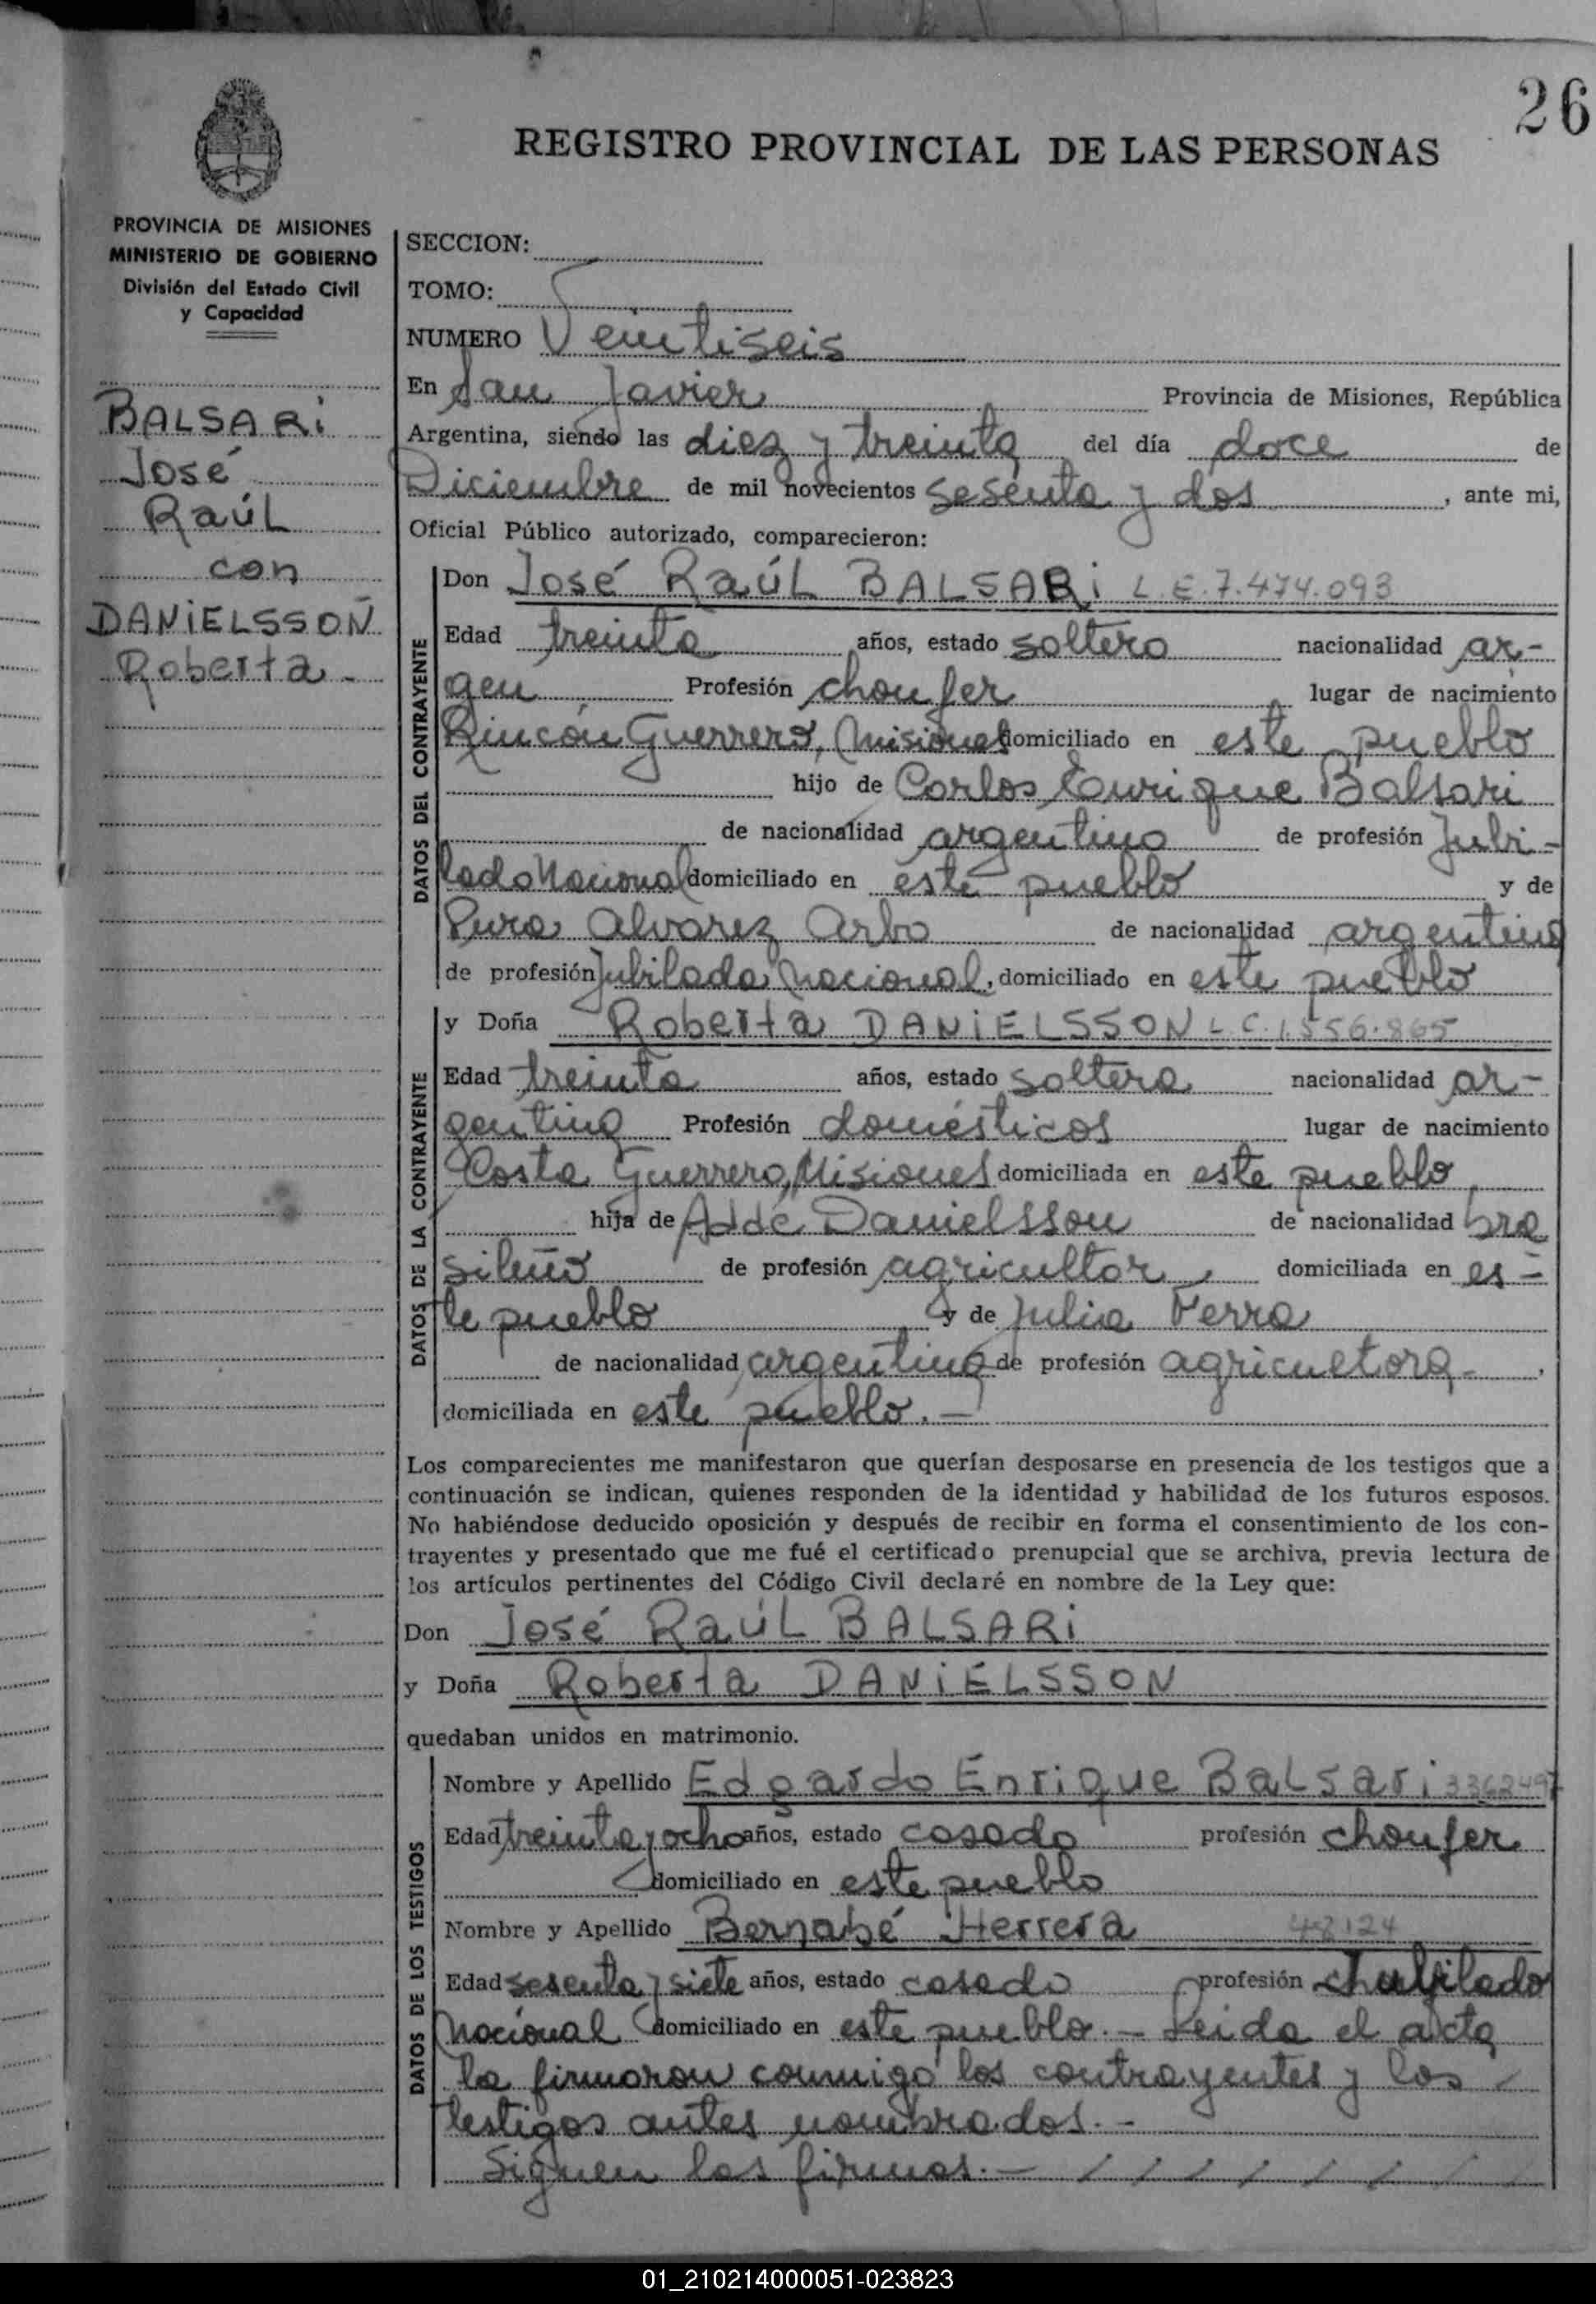 26
REGISTRO PROVINCIAL DE LAS PERSONAS
PROVINCIA DE MISIONES
MINISTERIO DE GOBIERNO
División del Estado Civil
y Capacidad
BALSARi
José
Raúl
con
DANiELSSON
Roberta -
SECCION:
TOMO:
NUMERO Veintiseis
En San Javier Provincia de Misiones, República
Argentina, siendo las diez y treinta del día doce de
Diciembre de mil novecientos sesenta y dos, ante mi,
Oficial Público autorizado, comparecieron:
DATOS DEL CONTRAYENTE
Don José Raúl BALSARi L.E. 7.474.093
Edad treinta años, estado soltero nacionalidad ar-
gen Profesión choufer lugar de nacimiento
Rincón Guerrero, Misiones domiciliado en este pueblo
hijo de Carlos Enrique Balsari
de nacionalidad argentino de profesión Jubi-
lado Nacional domiciliado en este pueblo y de
Pura Alvarez Arbo de nacionalidad argentina
de profesión Jubilada Nacional, domiciliado en este pueblo
DATOS DE LA CONTRAYENTE
y Doña Roberta DANiELSSON L.C. 1.556.865
Edad treinta años, estado soltera nacionalidad ar-
gentina Profesión domésticos lugar de nacimiento
Costa Guerrero, Misiones domiciliada en este pueblo
hija de Danielsson de nacionalidad bra
sileño de profesión agricultor, domiciliada en es-
te pueblo y de Julia Ferra
de nacionalidad argentina de profesión agricultora,
domiciliada en este pueblo. -
Los comparecientes me manifestaron que querían desposarse en presencia de los testigos que a
continuación se indican, quienes responden de la identidad y habilidad de los futuros esposos.
No habiéndose deducido oposición y después de recibir en forma el consentimiento de los con-
trayentes y presentado que me fué el certificado prenupcial que se archiva, previa lectura de
los artículos pertinentes del Código Civil declaré en nombre de la Ley que:
Don José Raúl BALSARi
y Doña Roberta DANiELSSON
quedaban unidos en matrimonio.
DATOS DE LOS TESTIGOS
Nombre y Apellido Edgardo Enrique Balsari 3362497
Edad treinta y ocho años, estado casado profesión choufer
domiciliado en este pueblo
Nombre y Apellido Bernabé Herrera 48124
Edad sesenta y siete años, estado casado profesión
Nacional domiciliado en este pueblo. - Leida el acta
la firmaron conmigo los contrayentes y los
testigos antes nombrados. -
Siguen las firmas. - / / / / / / /
01_210214000051-023823